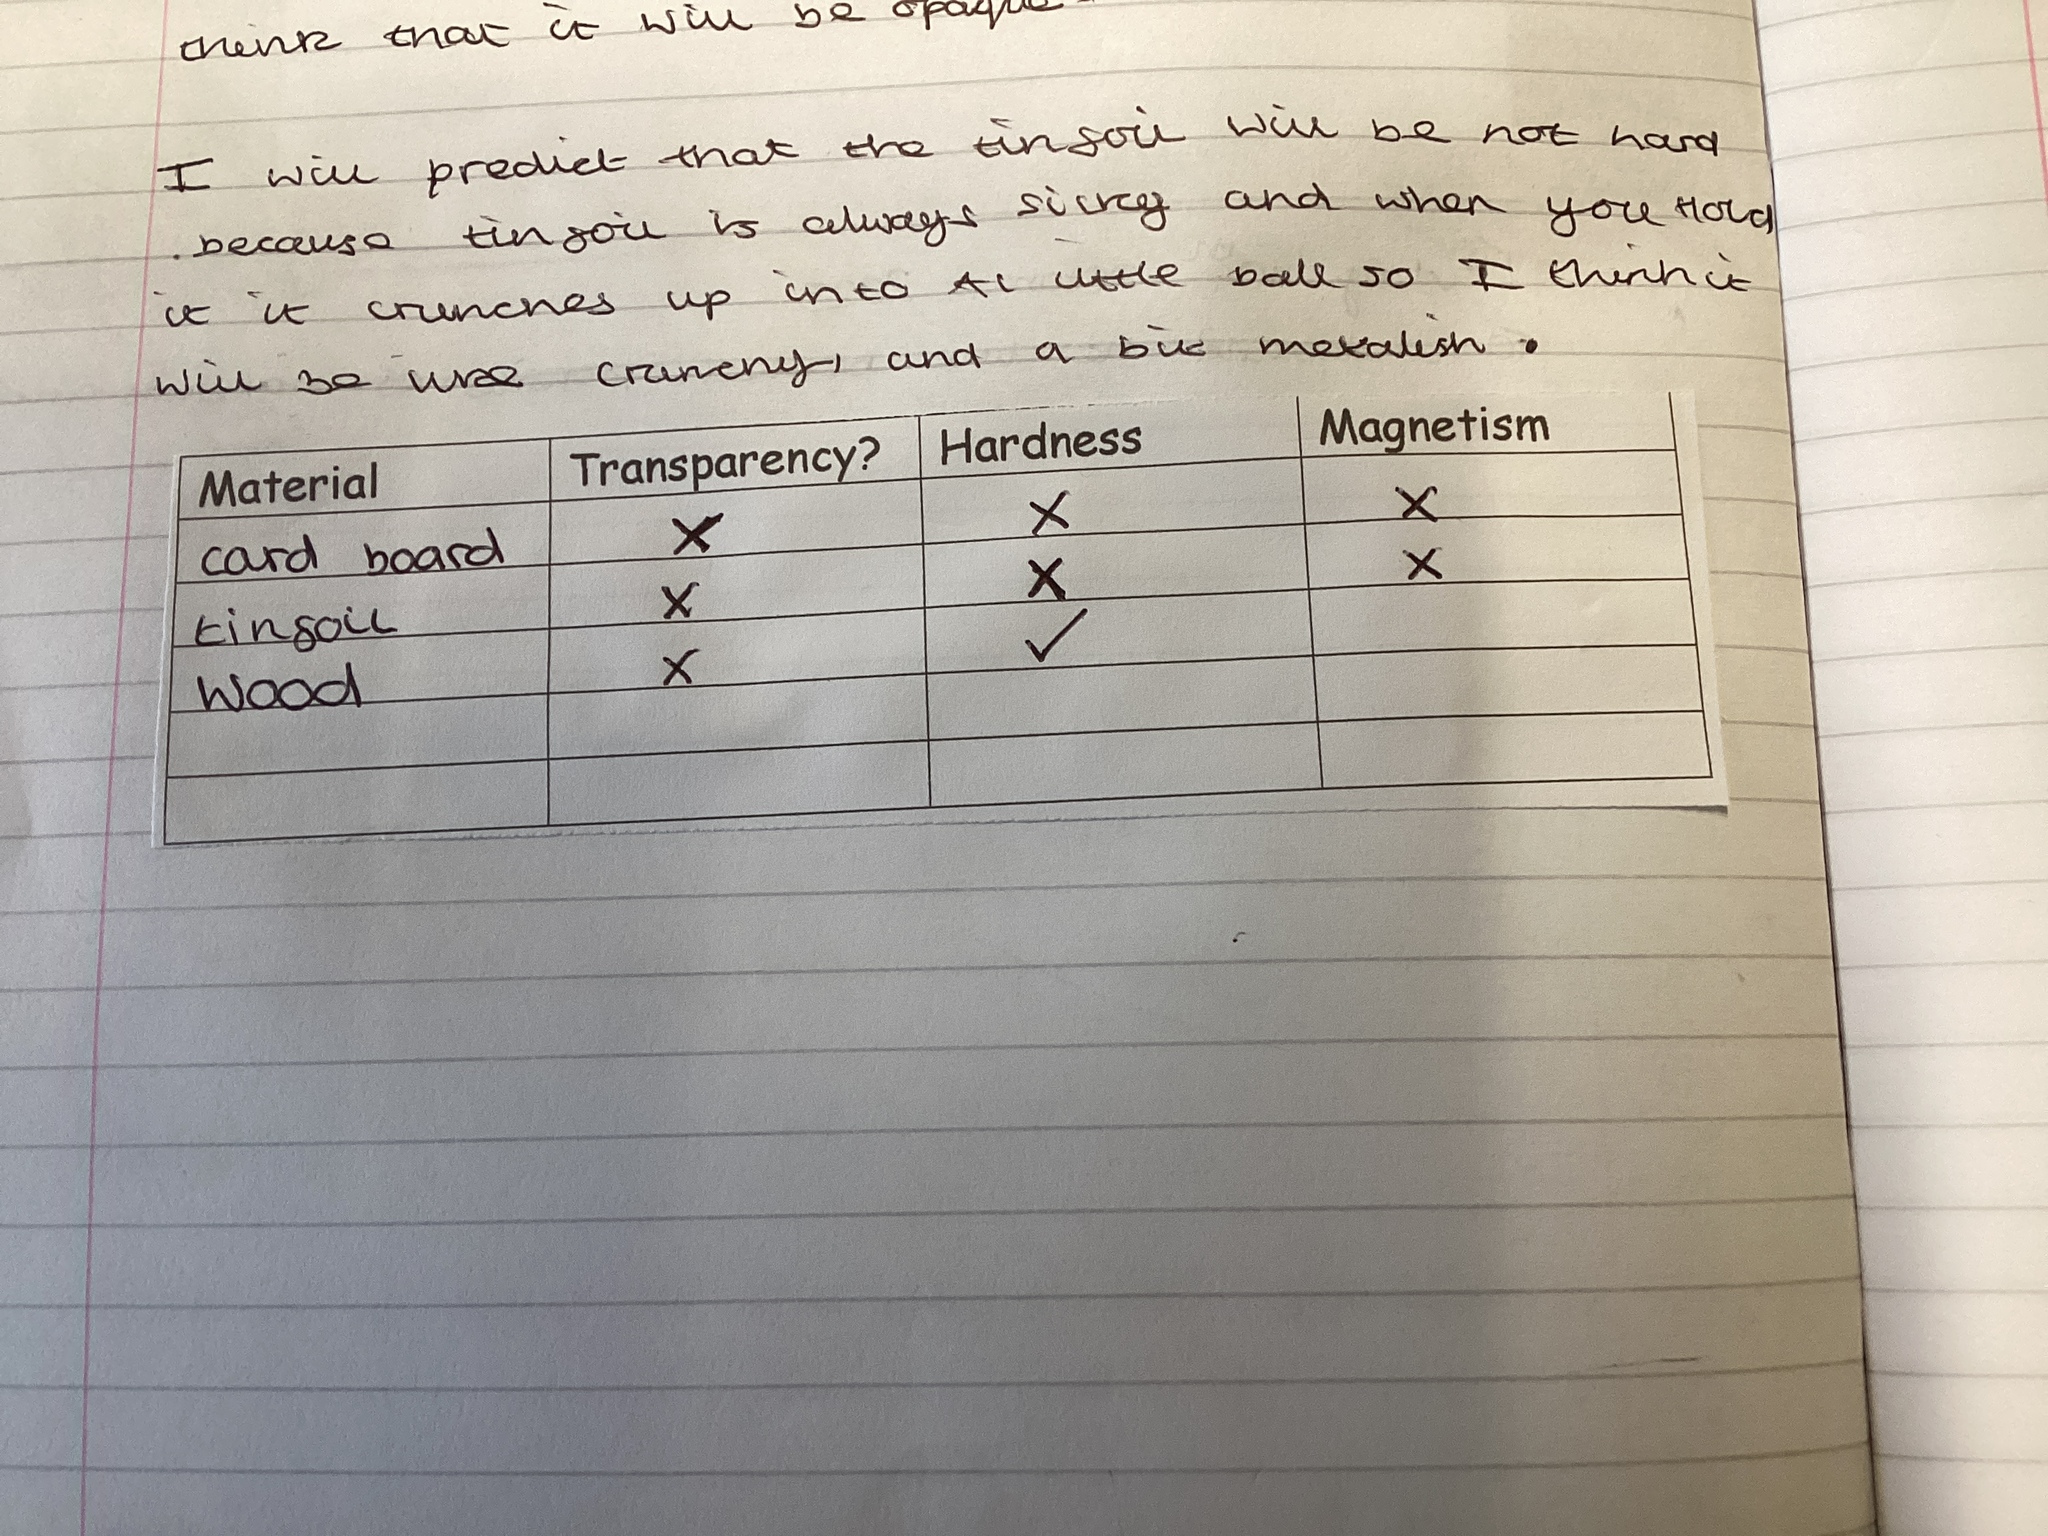 think that it will be opaque
I will predict that the tinfoil will be not hard
because tinfoil is always and when you Hold
it it crunches up into A little ball so I think it
will be like crunchy, and a bit metalish.
Material Transparency? Hardness Magnetism
card board X X X
tinfoil X X X
Wood X ✓